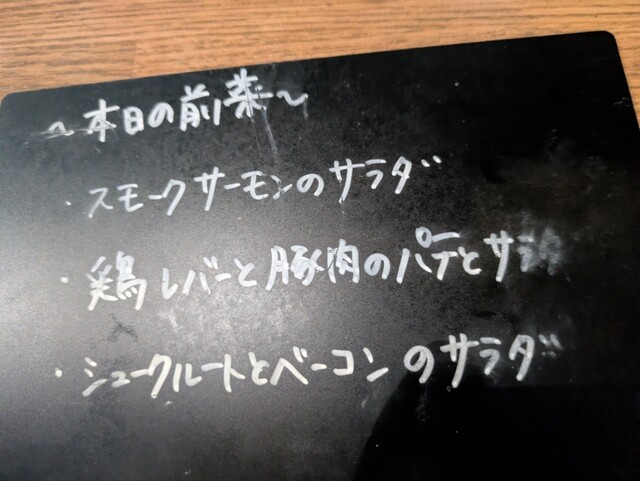 ~本日の前菜~
・スモークサーモンのサラダ
・鶏レバーと豚肉のパテとサラダ
・シュークルートとベーコンのサラダ